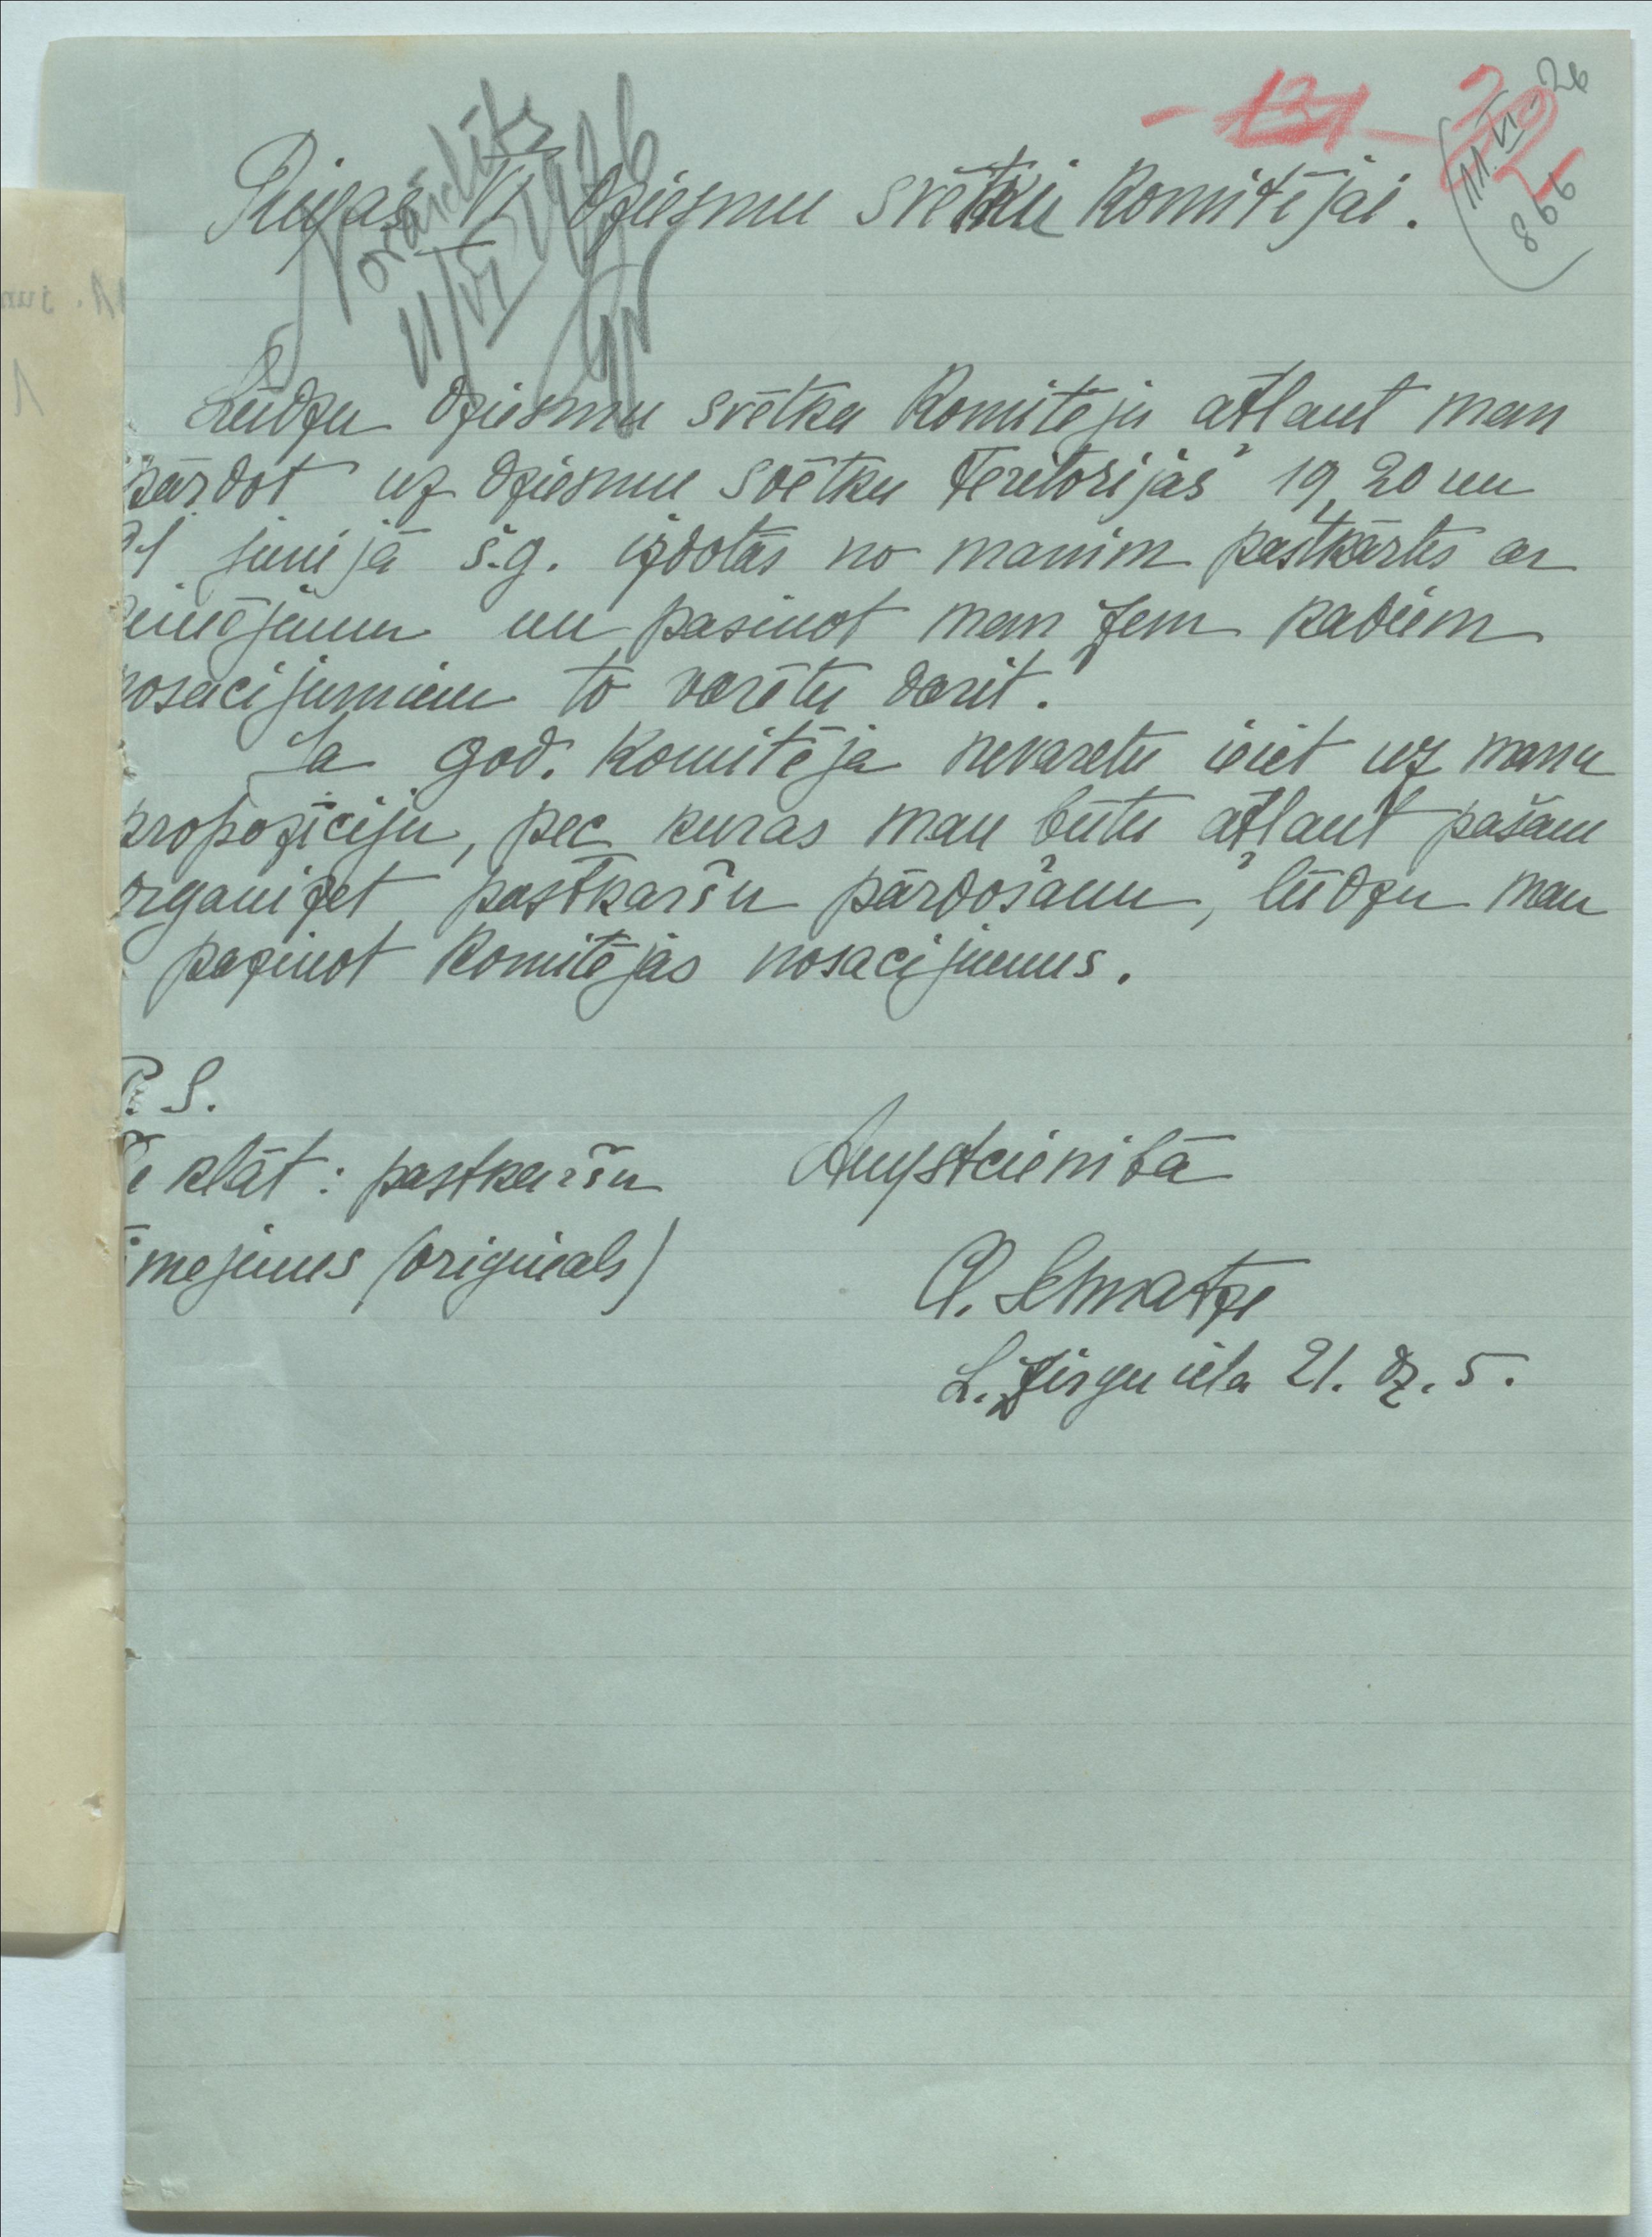 - 131 -
11. VI - 26
866
Norādīts
11/VI 1926
Rigas VI Dziesmu svētku Komitējai.
Lūdzu dziesmu svētku Komitēju atļaut man
pārdot uz dziesmu svētku teritorijas 19, 20 un
21 junijā š.g. izdotās no manim pastkārtes ar
zimējumu un pasinot man zem kadiem
nosacijumiem to varētu darit.
Ja god. Komitēja nevaretu ieiet uz manu
propoziciju, pec kuras man būtu atļaut pašam
organizet pastkaršu pārdošanu, lūdzu man
pazinot Komitējas nosacijumus.
P. S.
Te klāt: pastkaršu
zīmejums (originals)
Augstcienibā
L. Zirgu iela 21. dz. 5.